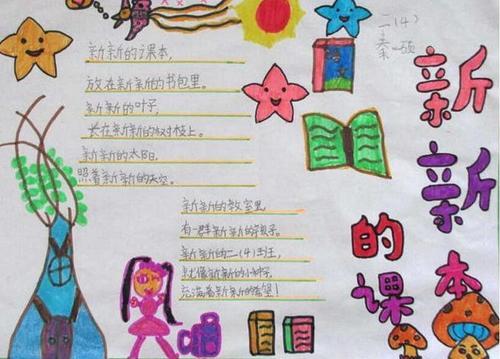 二(4)
秦一硕
新新的课本
新新的课本,
放在新新的书包里。
新新的叶子,
长在新新的树枝上。
新新的太阳,
照着新新的天空。
新新的教室里,
有一群新新的孩子。
新新的二(4)班,
就像新新的小种子,
充满着新新的希望!
语文